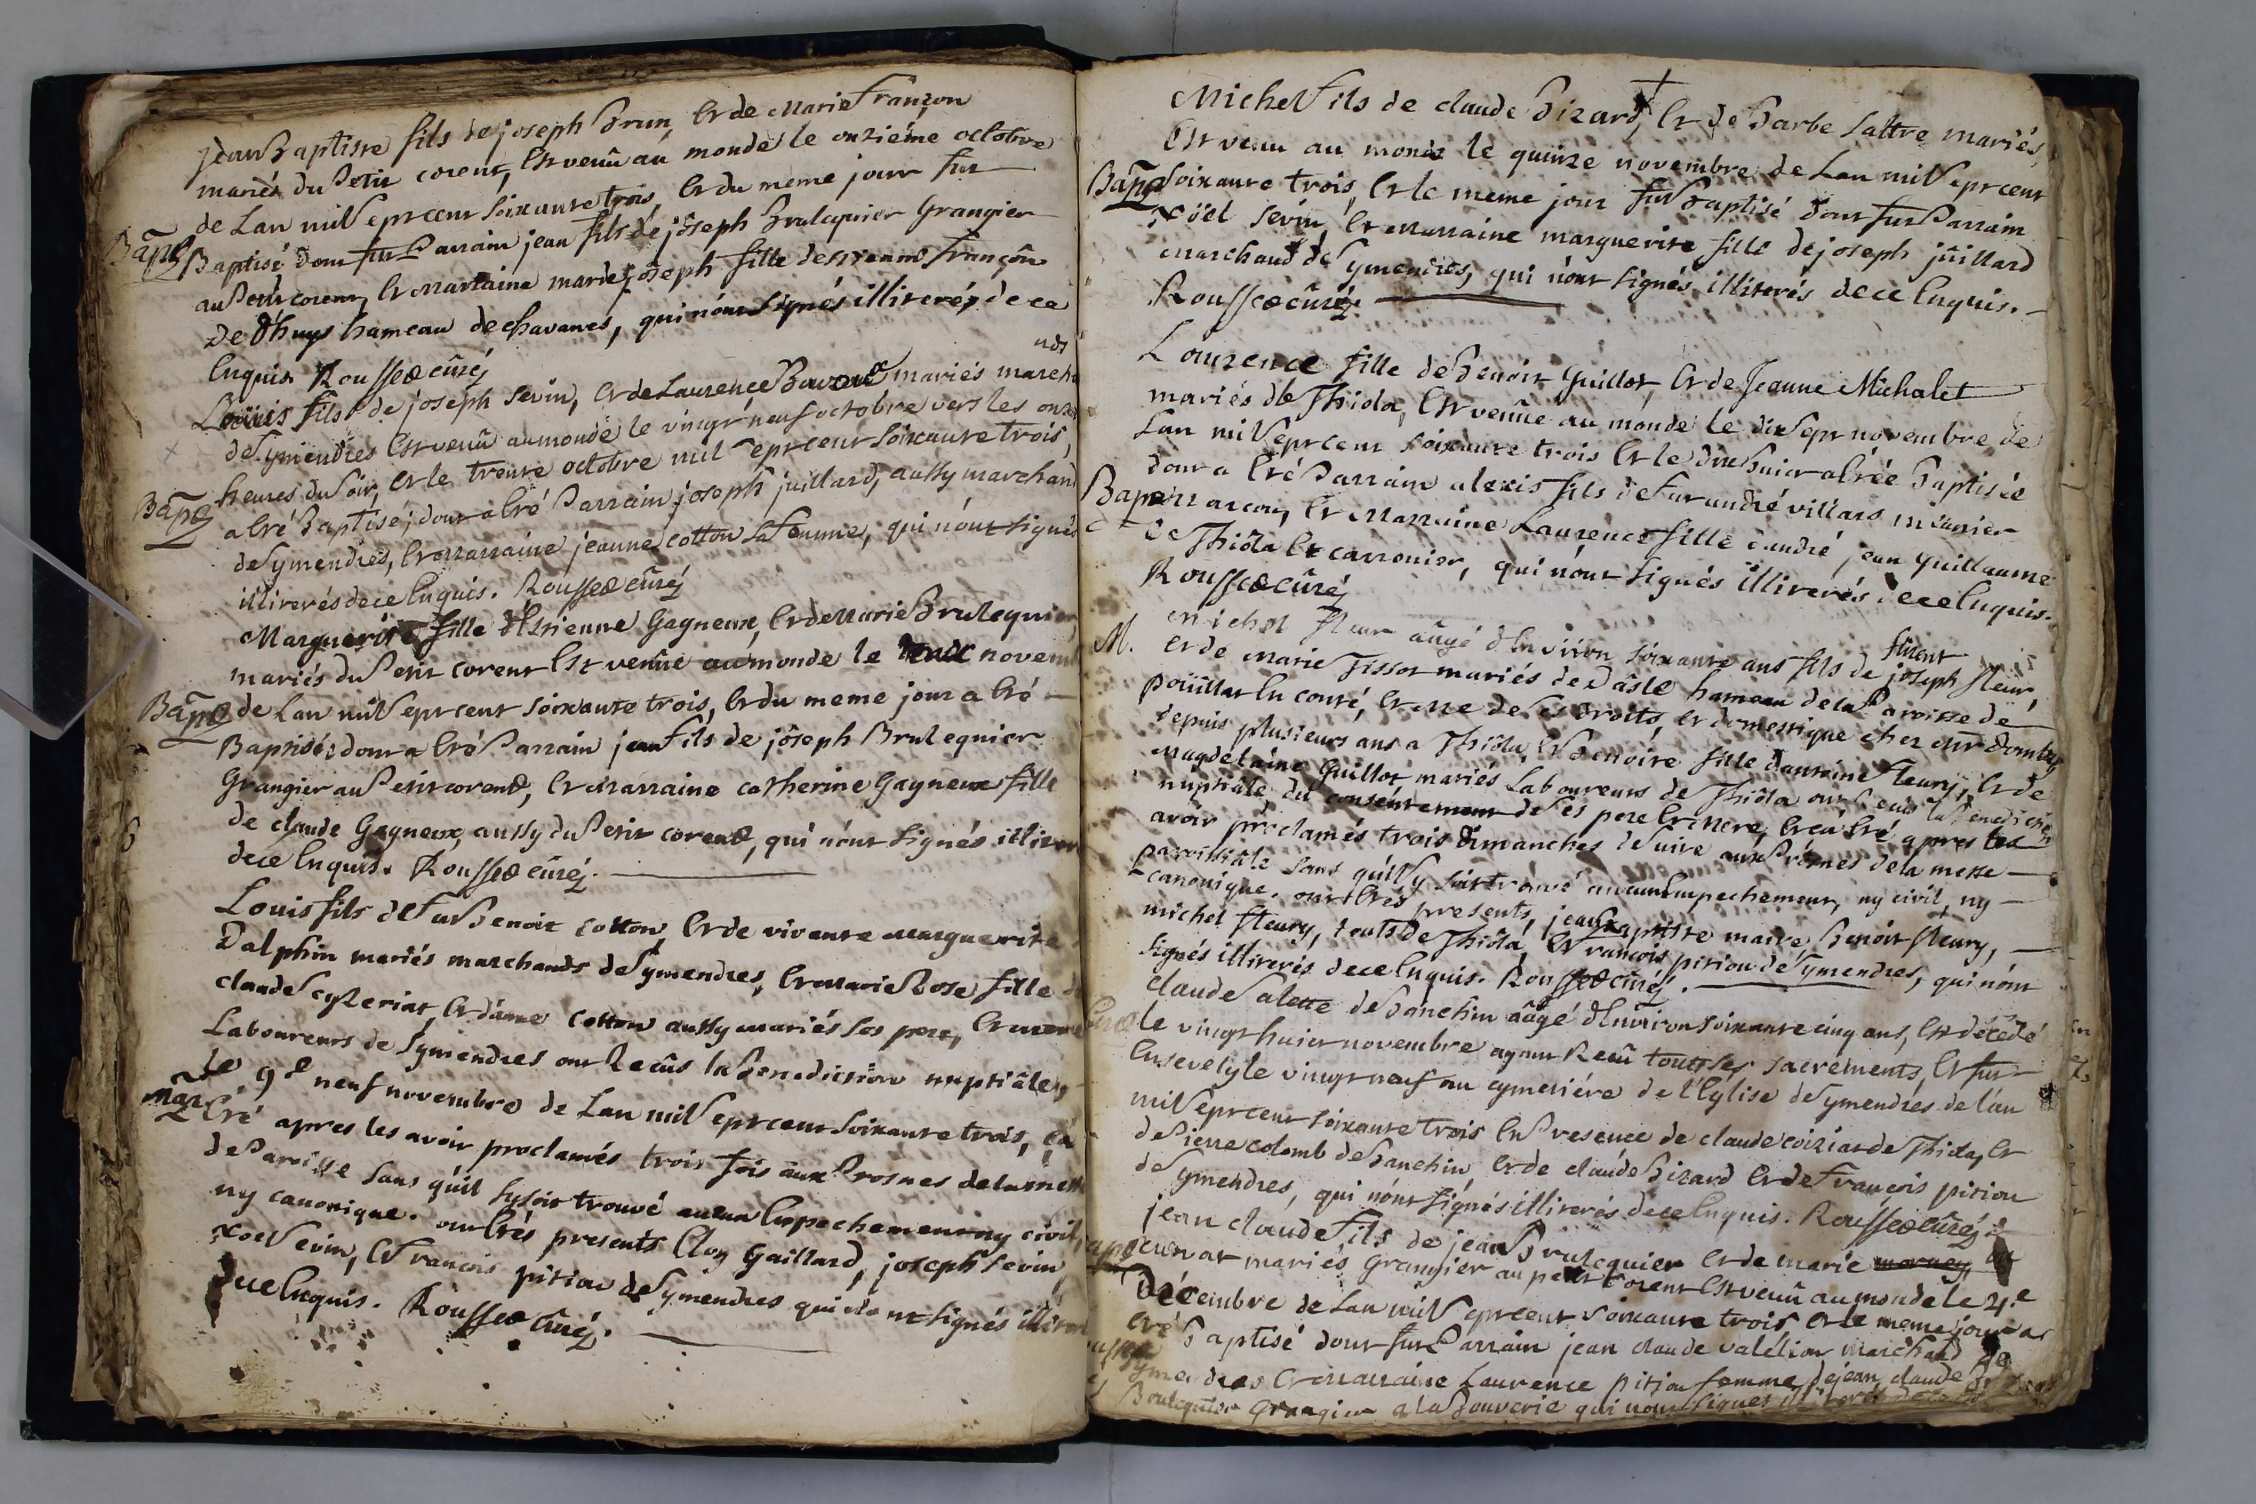 jean Baptiste fils de joseph Brun, et de Marie françon
mariés du Petit corent, est venû au monde le onziéme octobre
de Lan mil sept cent soixante trois, et du meme jour fut
Bapt Baptisé dont fut Parrain jean fils de joseph Brulequier Grangier
au Petit corent, et Marraine marie joseph fille destienne françon
De d'huys hameau de chavanes, qui n'ont signés illiterés de ce
Enquis. Rousset curé
Louis fils de joseph sevin, et de Laurence mariés marchands
de Symendres est venû au monde le vingt neuf octobre vers les onze
heures du soir, et le trente octobre mil sept cent soixante trois,
Bapt a été Baptisé, dont a été Parrain joseph juillard, aussy marchand
de Symendres, et marraine jeanne cotton sa femme, qui n'ont signés
illiterés de ce Enquis. Rousset curé
Marguerite fille d'Estienne Gagneux, et de Marie Brulequier,
mariés du Petit corent est venûe au monde le novem
Bapt de Lan mil sept cent soixante trois, et du meme jour a été
Baptisée dont a été Parrain jean fils de joseph Brulequier
Grangier au Petit corent, et Marraine catherine Gagneux fille
de claude Gagneux, aussy du Petit corent, qui n'ont signés illiter
de ce Enquis. Rousset curé.
Louis fils de fut Benoit cotton, et de vivante Marguerite
Dalphin mariés marchands de Symendres, et Marie Rose fille de
claude Ceyzeriat, et d'anne cotton aussy mariés ses pere, et mere
Laboureurs de Symendres ont Recûs la Benediction nuptiâle,
le 9e neuf novembre de Lan mil sept cent soixante trois, ça
Mar Eté apres les avoir proclamés trois fois aux Prosnes de la messe
de Paroisse sans qu'il sysoit trouvé aucun Empechement ny civil,
ny canonique. ont Etés presents Eloy Gaillard, joseph sevin,
Noel sevin, et francois pition de Symendres qui n'ont signés illiter
de ce Enquis. Rousset Curé.
Michel fils de claude Bizard, et de Barbe Lattre mariés,
Est venu au monde le quinze novembre de Lan mil sept cent
Bapt soixante trois, et le meme jour fut Baptisé dont fut Parrain
Noël sevin, et Marraine marguerite fille de joseph juillard
marchand de Symendres, qui n'ont signés illiterés de ce Enquis.
Rousset curé.
Laurence fille de Benoit Guillot, et de Jeanne Michalet
mariés de Thiola, est venûe au monde le dix sept novembre de
Lan mil sept cent soixante trois et le dix huit a Etée Baptisée
Bapt dont a Eté Parrain alexis fils de fut andré villars meunier
a arcon, et Marraine Laurence fille d'andré jean guillaume
de Thiola et carronier, qui n'ont signés illiterés de ce Enquis.
Rousset curé
M. michel fleur aûgé d'Environ soixante ans fils de furent joseph fleur,
et de marie Tissot mariés de Dasle hameau de la Paroisse de
poüillat En comté, et Me de ses droits, et domestique chez Mr Dombey
depuis plusieurs ans a Thiola, et Benoite fille d'antoine fleury, et de
Magdelaine Guillot mariés Laboureurs de Thiola ont Recus la Benediction
nuptiâle du consentement de ses pere et Mere, et ça Eté apres les
avoir proclamés trois dimanches de suite aux Prônes de la messe
paroissiâle sans qu'il sy soit trouvé aucun Empechement, ny civil, ny
canonique. ont Etés presents, jean Baptiste maire, Benoit fleury,
michel fleury, touts de Thiola, et francois pition de Symendres, qui n'ont
signés illiterés de ce Enquis. Rousset curé.
claude salette de Banchin aâgé d'Environ soixante cinq ans, est décédé
le vingt huit novembre ayant Recû touts ses sacrements, et fut
Ensevely le vingt neuf au cymetiére de l'Eglise de Symendres de l'an
mil sept cent soixante trois En Presence de claude coiziat de Thiola, et
de Pierre colomb de Banchin, et de claude Bizard et de francois pition
de Symendres, qui n'ont signés illiterés de ce Enquis. Rousset curé.
jean claude fils de jean Brulequier et de marie
mariés Grangier au petit corent Est venû au monde le 4e
Décembre de Lan mil sept cent soixante trois et le meme jour a
eté Baptisé dont fut Parrain jean claude valélion marchand de
Symendres et Marraine Laurence pition femme de jean claude
Brulequier Grangier a la Bouverie qui n'ont signés